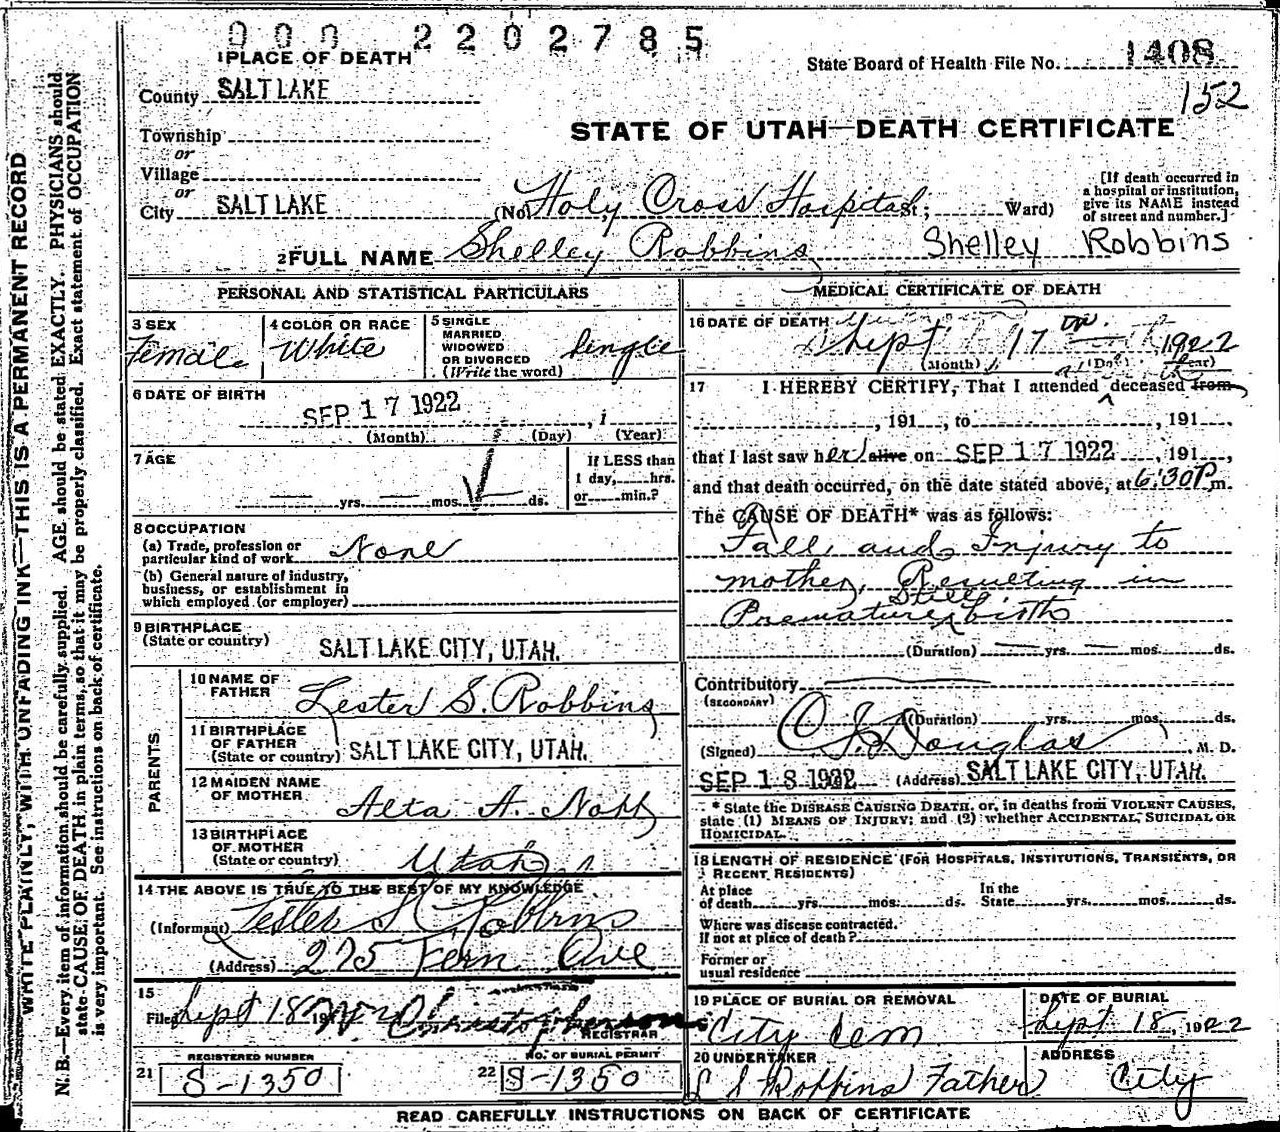 0 0 0 2 2 0 2 7 8 5
1 PLACE OF DEATH
State Board of Health File No. 1408
152
County SALT LAKE
STATE OF UTAH—DEATH CERTIFICATE
Township
or
Village
or
City SALT LAKE (No. Holy Cross Hospital St; Ward)
[If death occurred in a hospital or institution, give its NAME instead of street and number.]
2 FULL NAME Shelley Robbins Shelley Robbins
PERSONAL AND STATISTICAL PARTICULARS
3 SEX Female
4 COLOR OR RACE White
5 SINGLE MARRIED WIDOWED OR DIVORCED (Write the word) Single
6 DATE OF BIRTH
SEP 17 1922, 1
(Month) (Day) (Year)
7 AGE
yrs. mos. ds.
If LESS than 1 day, hrs. or min.?
8 OCCUPATION
(a) Trade, profession or particular kind of work None
(b) General nature of industry, business, or establishment in which employed (or employer)
9 BIRTHPLACE
(State or country) SALT LAKE CITY, UTAH.
PARENTS
10 NAME OF FATHER Lester S. Robbins
11 BIRTHPLACE OF FATHER (State or country) SALT LAKE CITY, UTAH.
12 MAIDEN NAME OF MOTHER Alta A.
13 BIRTHPLACE OF MOTHER (State or country) Utah
14 THE ABOVE IS TRUE TO THE BEST OF MY KNOWLEDGE
(Informant) Lester S. Robbins
(Address) 275 Fern Ave
15
Filed Sept 18 19 Christopherson
REGISTRAR
REGISTERED NUMBER
21 S-1350
NO. OF BURIAL PERMIT
22 S-1350
MEDICAL CERTIFICATE OF DEATH
16 DATE OF DEATH
Sept 17 1922
(Month) (Day) (Year)
17 I HEREBY CERTIFY, That I attended deceased from
, 191 , to , 191 ,
that I last saw her alive on SEP 17 1922, 191 ,
and that death occurred, on the date stated above, at 6:30 P m.
The CAUSE OF DEATH* was as follows:
Fall and Injury to
mother, Resulting in
Premature Still birth
(Duration) yrs. mos. ds.
Contributory
(SECONDARY)
(Duration) yrs. mos. ds.
(Signed) Douglas, M. D.
SEP 18 1922 (Address) SALT LAKE CITY, UTAH.
* State the DISEASE CAUSING DEATH, or, in deaths from VIOLENT CAUSES,
state (1) MEANS OF INJURY; and (2) whether ACCIDENTAL, SUICIDAL OR
HOMICIDAL.
18 LENGTH OF RESIDENCE (FOR HOSPITALS, INSTITUTIONS, TRANSIENTS, OR
RECENT RESIDENTS)
At place of death yrs. mos. ds. In the State yrs. mos. ds.
Where was disease contracted. If not at place of death?
Former or usual residence
19 PLACE OF BURIAL OR REMOVAL City Cem
DATE OF BURIAL Sept 18, 1922
20 UNDERTAKER L S Robbins Father
ADDRESS City
READ CAREFULLY INSTRUCTIONS ON BACK OF CERTIFICATE
WRITE PLAINLY, WITH UNFADING INK—THIS IS A PERMANENT RECORD
N. B.—Every item of information should be carefully supplied. AGE should be stated EXACTLY. PHYSICIANS should
state CAUSE OF DEATH in plain terms, so that it may be properly classified. Exact statement of OCCUPATION
is very important. See instructions on back of certificate.